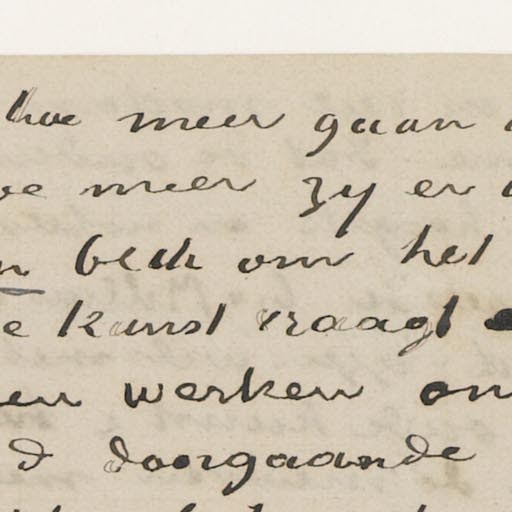 hoe meer gaan
oe meer zy er
n bech om het
e kunst vraagt
en werken on
d doorgaande